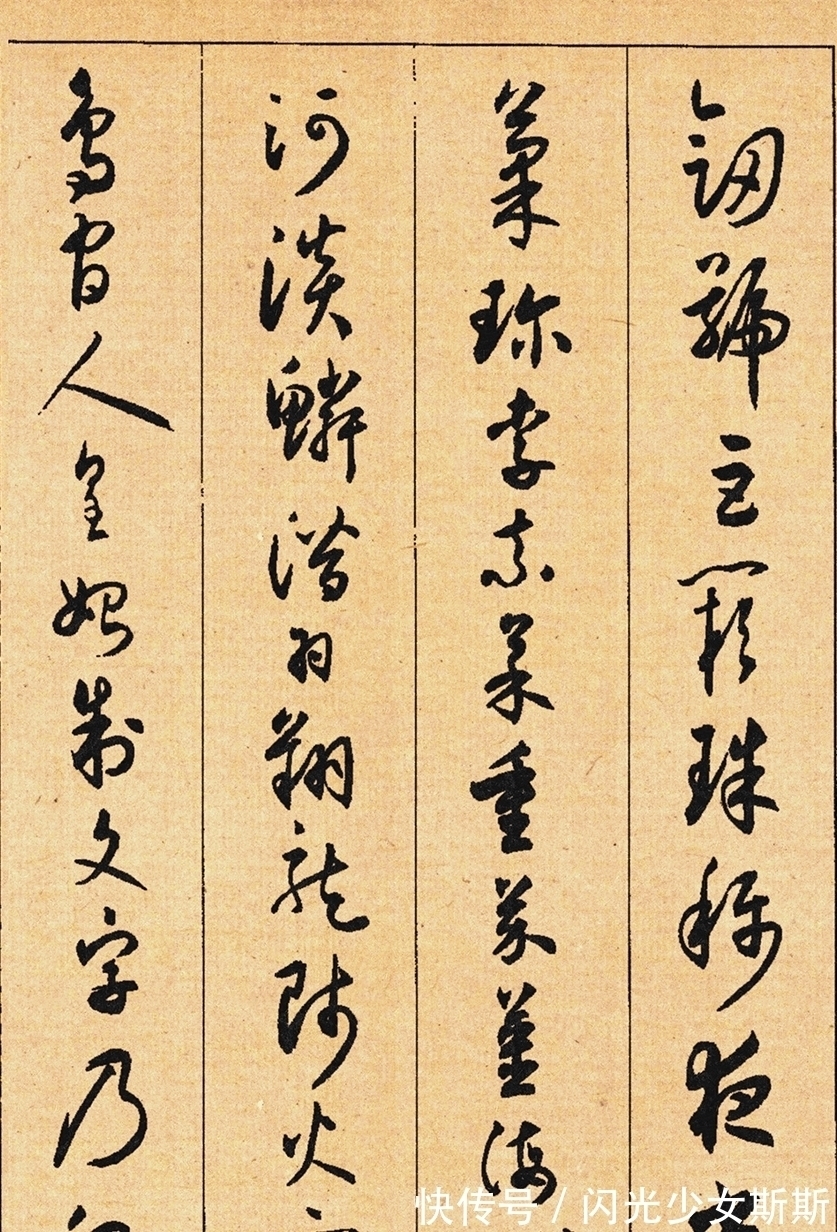 劒號巨闕珠稱夜
菓珍李柰菜重芥薑海
河淡鱗潛羽翔龍師火
鳥官人皇始制文字乃
快传号 / 闪光少女斯斯